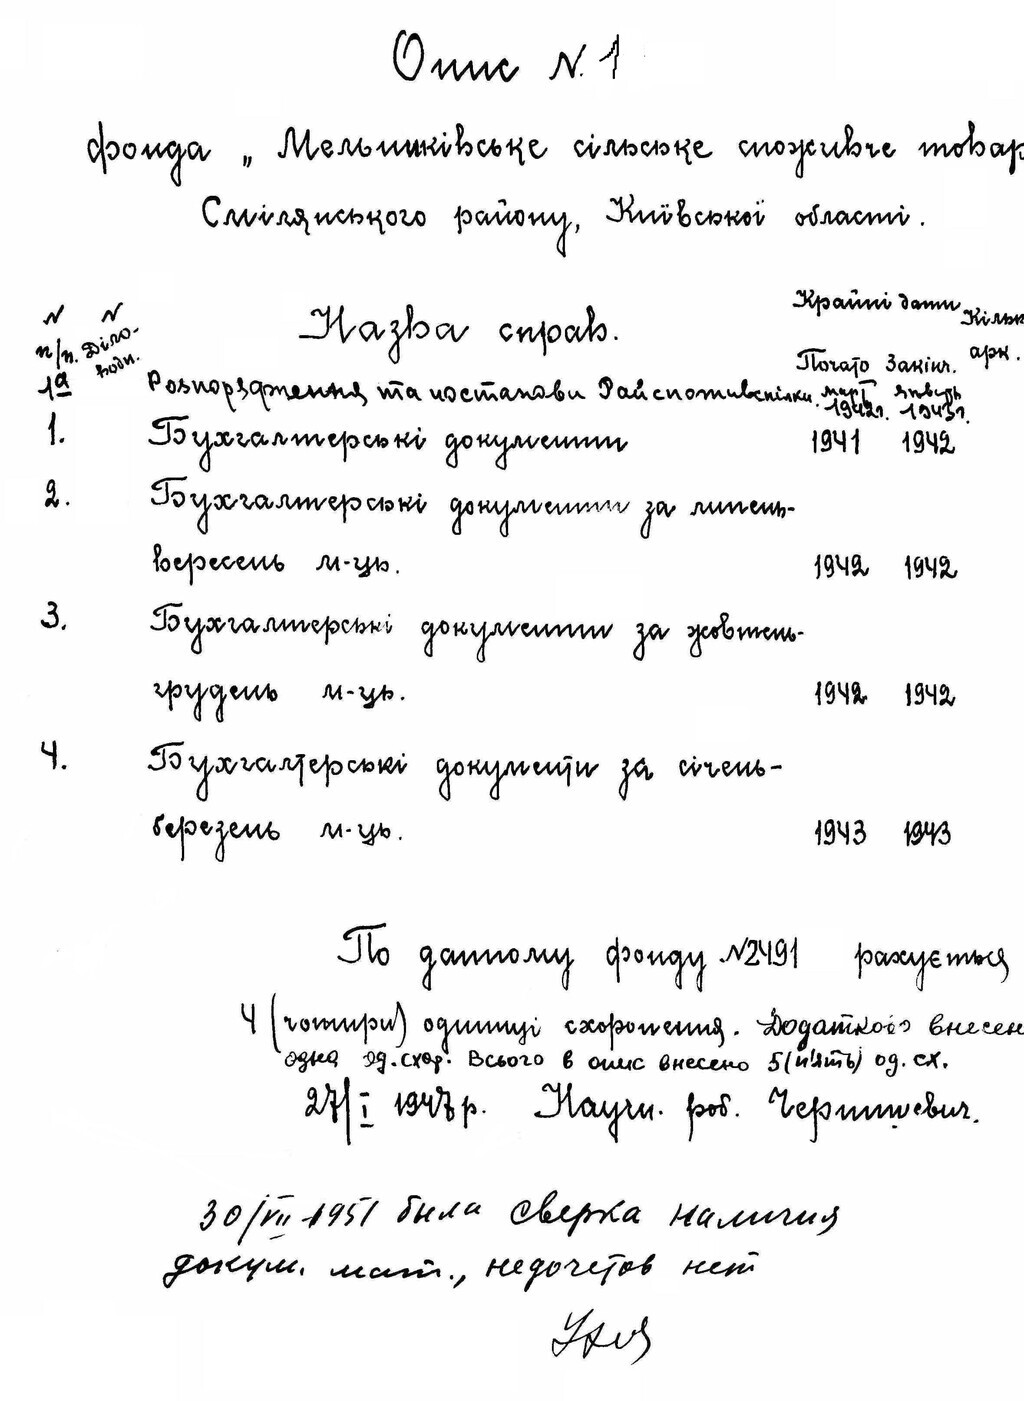 Опис N.1
фонда „ Мельниківське сільське споживче товар
Смілянського району, Київської області.
N N Назва справ. Крайні дати Кільк
п/п. Діло- арк.
води. Почато Закінч.
1а Розпорядження та постанови Райспоживспілки. март январь
1942г. 1943г.
1. Бухгалтерські документи 1941 1942
2. Бухгалтерські документи за липень-
вересень м-ць. 1942 1942
3. Бухгалтерські документи за жовтень-
грудень м-ць. 1942 1942
4. Бухгалтерські документи за січень-
березень м-ць. 1943 1943
По данному фонду N2491 рахується
4 (чотири) одиниці схоронення. Додатково внесен
одна од.схор. Всього в опис внесено 5(п'ять) од.сх.
27/I 1947р. Научн. роб. Чернишевич.
30/VII-1951 была сверка наличия
докум. мат., недочетов нет